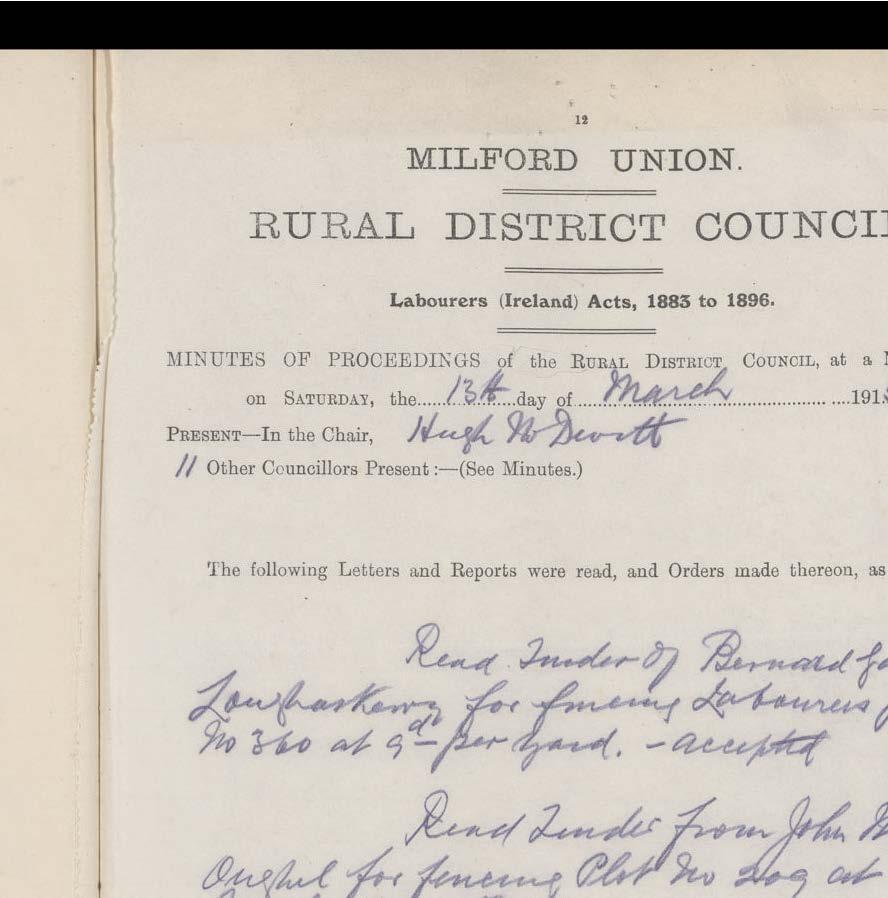 12
MILFORD UNION.
RURAL DISTRICT COUNCI
Labourers (Ireland) Acts, 1883 to 1896.
MINUTES OF PROCEEDINGS of the RURAL DISTRICT COUNCIL, at a
on SATURDAY, the 13th day of March 191
PRESENT—In the Chair, Hugh McDevitt
11 Other Councillors Present :—(See Minutes.)
The following Letters and Reports were read, and Orders made thereon, as
Read Tender of Bernard
for fencing Labourers
No 360 at 9d per yard. - accepted
Read Tender from John
for fencing Plot No 209 at